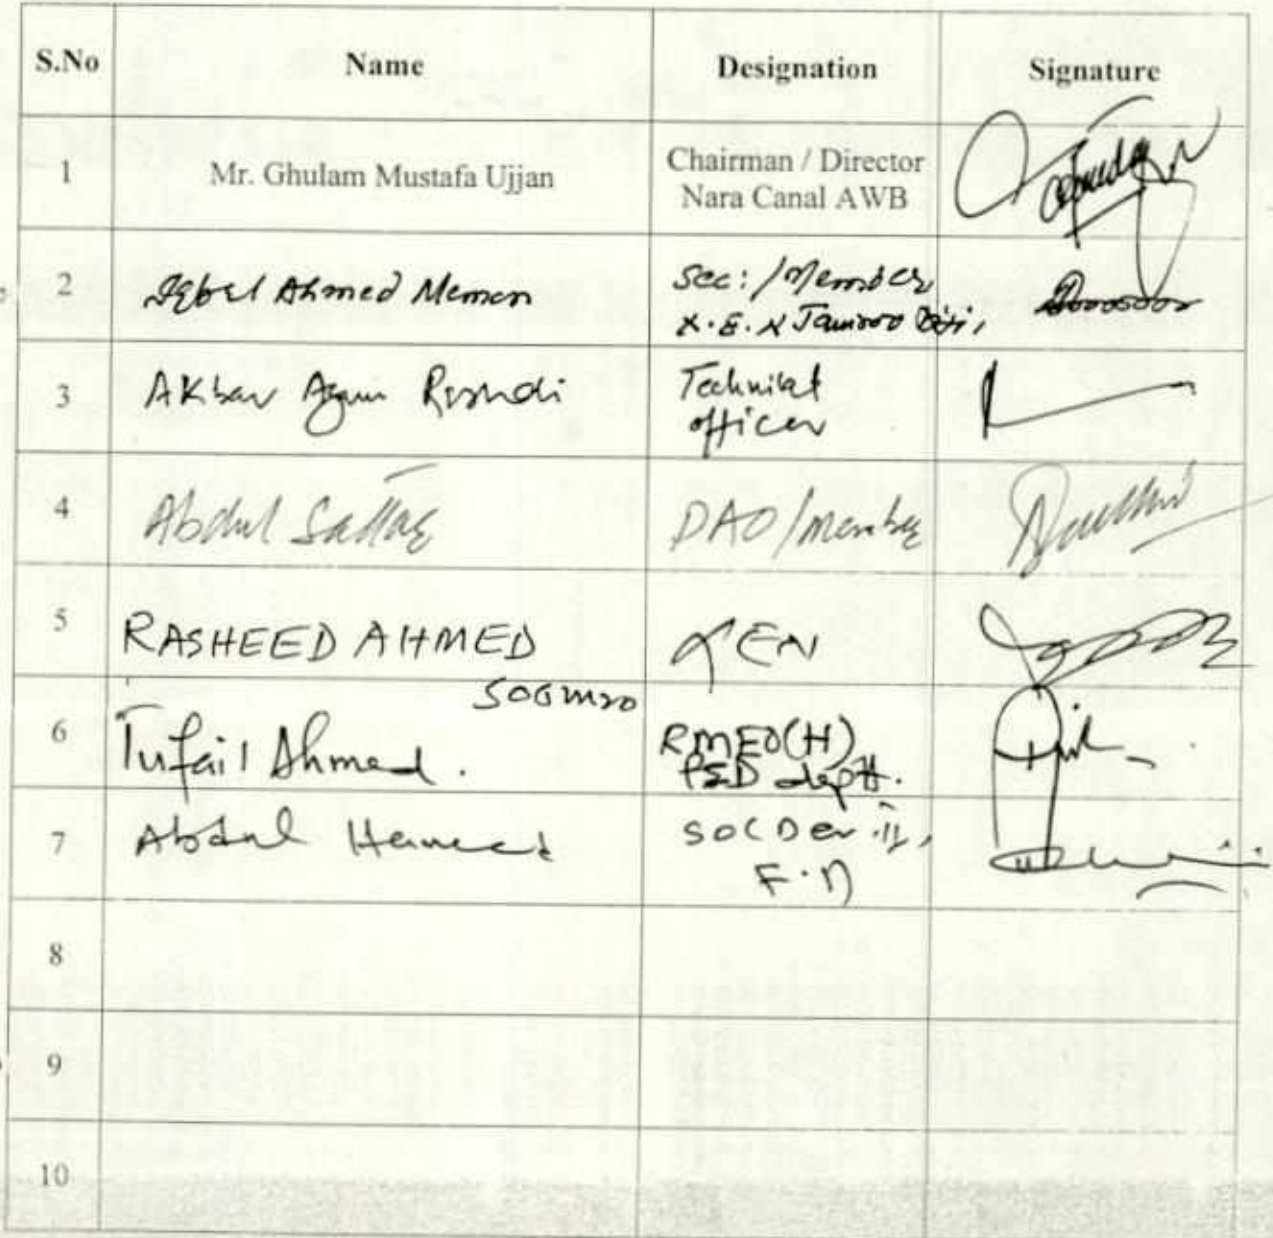 S.No Name Designation Signature
1 Mr. Ghulam Mustafa Ujjan Chairman / Director
Nara Canal AWB
2 Iqbal Ahmed Memon Sec: / Member
X.E.N Jamrao
3 Akbar Rushdi Technical
officer
4 Abdul Sattar DAO/member
5 RASHEED AHMED XEN
SOOMRO
6 Tufail Ahmed. RMEO(H)
P&D deptt.
7 Abdul Hameed SO(Dev-II),
F.D
8
9
10